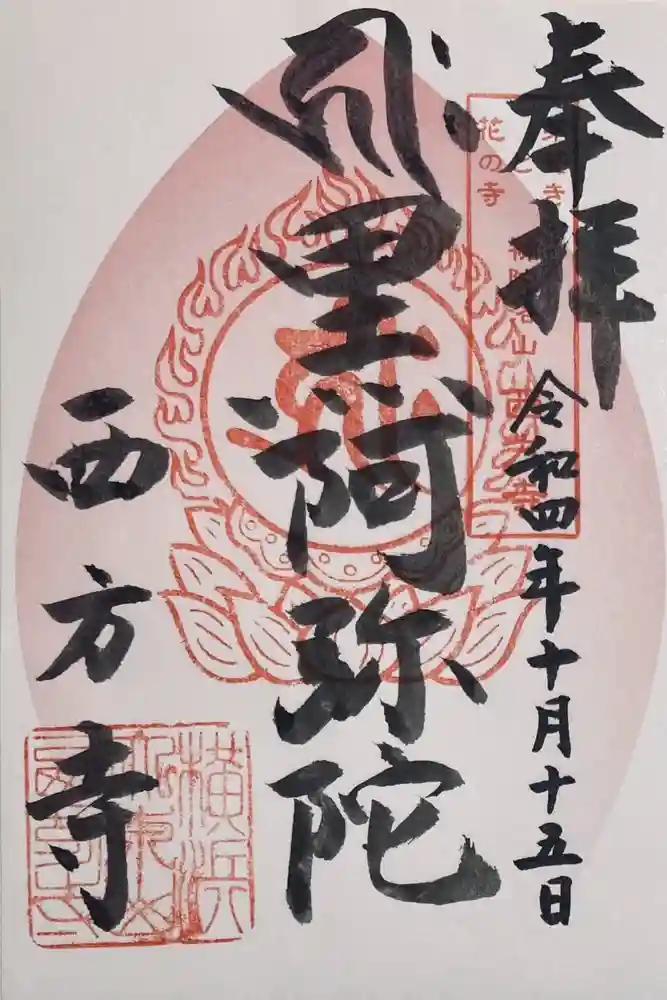 奉拝
令和四年十月十五日
黒阿弥陀
西方寺
花の寺
横浜